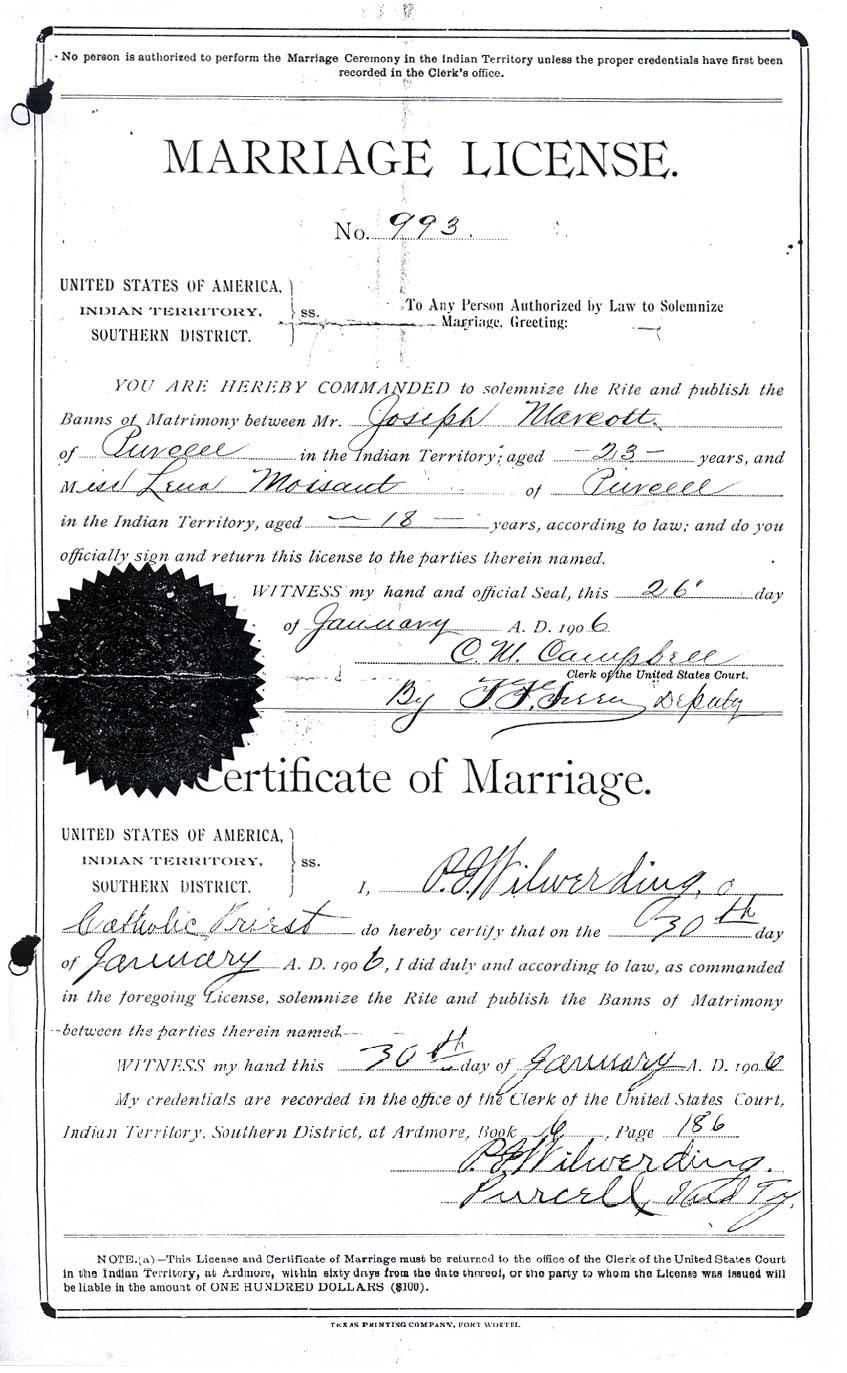 No person is authorized to perform the Marriage Ceremony in the Indian Territory unless the proper credentials have first been
recorded in the Clerk's office.
MARRIAGE LICENSE.
No. 993.
UNITED STATES OF AMERICA,
INDIAN TERRITORY,
SOUTHERN DISTRICT.
ss.
To Any Person Authorized by Law to Solemnize
Marriage, Greeting:
YOU ARE HEREBY COMMANDED to solemnize the Rite and publish the
Banns of Matrimony between Mr. Joseph Marcott.
of Purcell in the Indian Territory; aged -23- years, and
Miss Lena Moisant of Purcell
in the Indian Territory, aged -18- years, according to law; and do you
officially sign and return this license to the parties therein named.
WITNESS my hand and official Seal, this 26" day
of January A. D. 1906
C. M. Campbell
Clerk of the United States Court.
By Deputy
Certificate of Marriage.
UNITED STATES OF AMERICA,
INDIAN TERRITORY,
SOUTHERN DISTRICT.
ss.
I, P.J. Wilwerding, a
Catholic Priest do hereby certify that on the 30th day
of January A. D. 1906, I did duly and according to law, as commanded
in the foregoing License, solemnize the Rite and publish the Banns of Matrimony
between the parties therein named.
WITNESS my hand this 30th day of January A. D. 1906
My credentials are recorded in the office of the Clerk of the United States Court,
Indian Territory, Southern District, at Ardmore, Book , Page 186
P.J. Wilwerding.
Purcell, Ind Ty.
NOTE.(a)—This License and Certificate of Marriage must be returned to the office of the Clerk of the United States Court
in the Indian Territory, at Ardmore, within sixty days from the date thereof, or the party to whom the License was issued will
be liable in the amount of ONE HUNDRED DOLLARS ($100).
TEXAS PRINTING COMPANY, FORT WORTH.